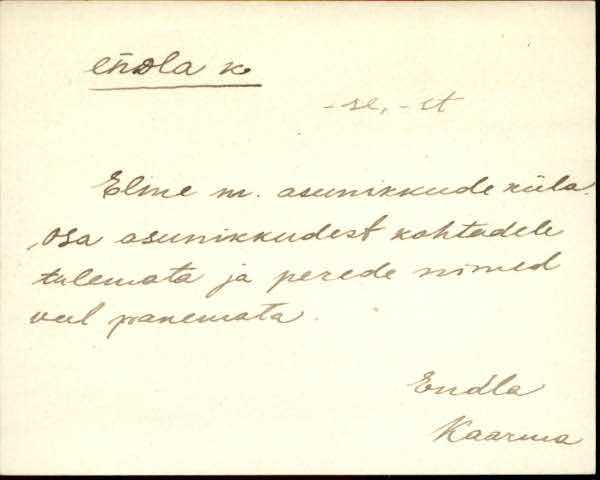 eǹdla k.
-se, -st
Elme m. asunikkude küla.
Osa asunikkudest kohtadele
tulemata ja perede nimed
veel panemata.
Eǹdla
Kaarma